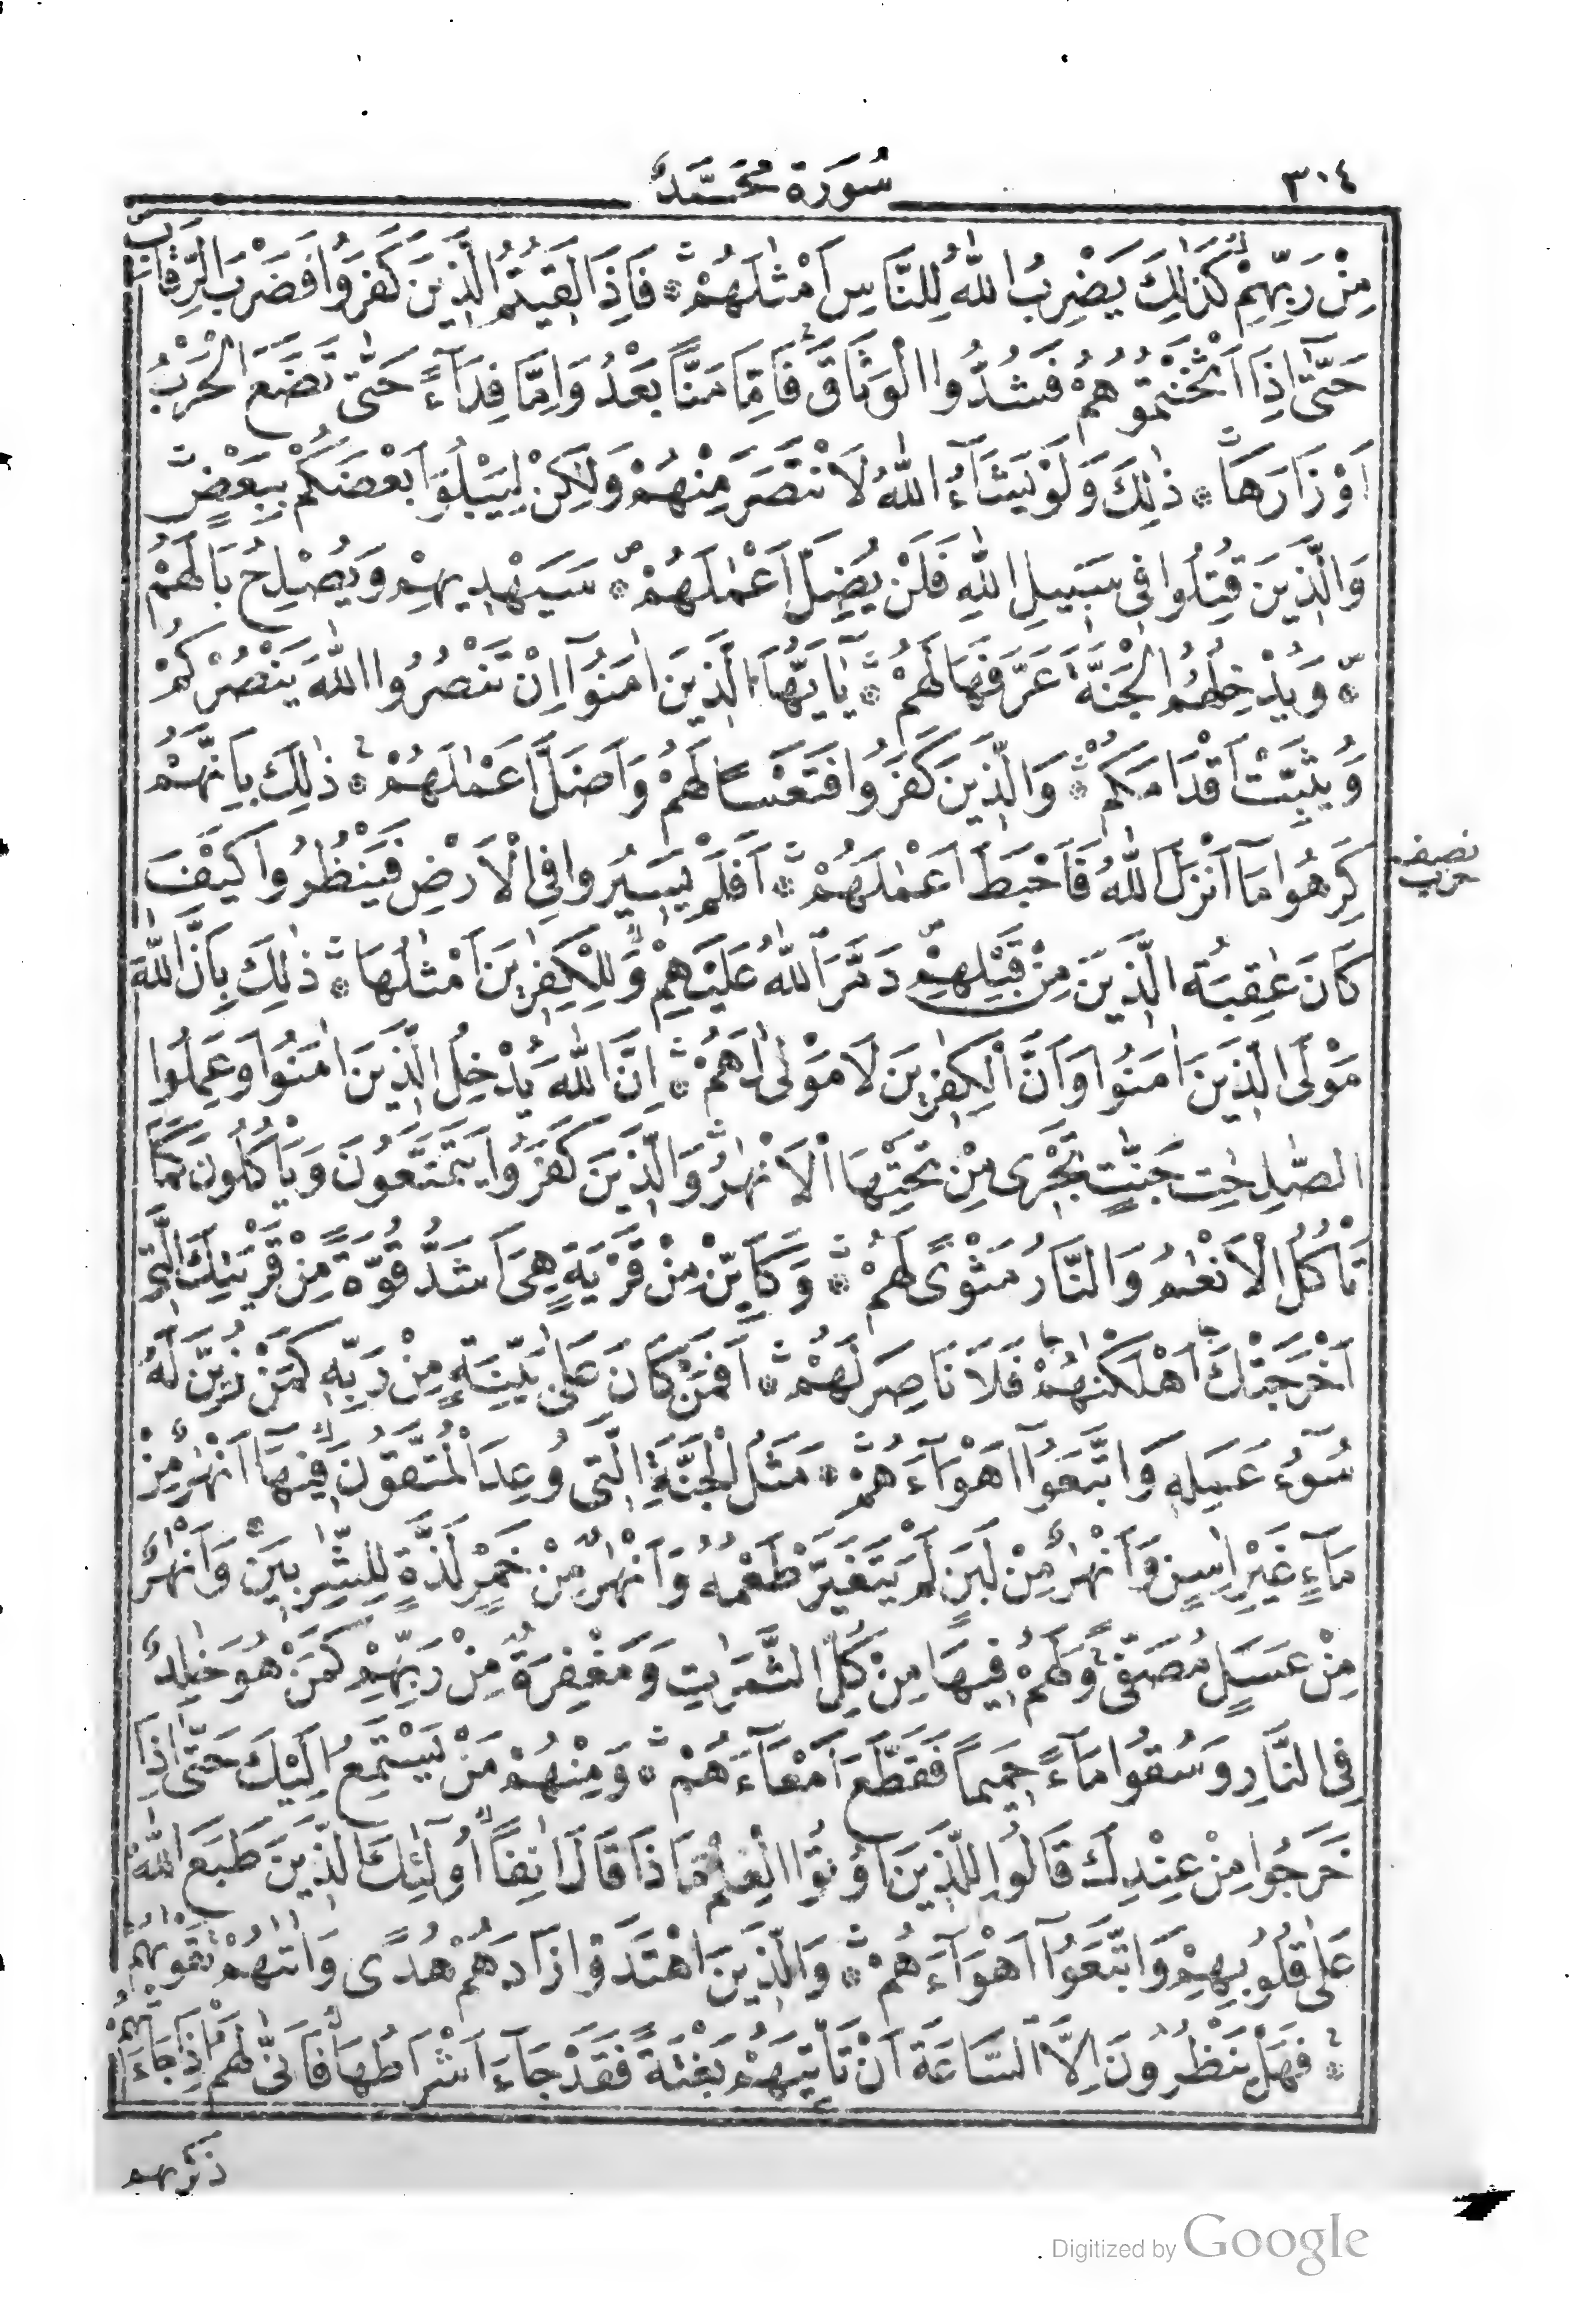 ٣٠٤
سُورَةُ مُحَمَّدٍ
مِنْ رَبِّهِمْ كَذٰلِكَ يَضْرِبُ اللّٰهُ لِلنَّاسِ اَمْثٰلَهُمْ ۞ فَاِذَا لَقِيتُمُ الَّذِينَ كَفَرُوا فَضَرْبَ الرِّقَابِ
حَتّٰٓى اِذَآ اَثْخَنْتُمُوهُمْ فَشُدُّوا الْوَثَاقَ فَاِمَّا مَنًّا بَعْدُ وَاِمَّا فِدَآءً حَتّٰى تَضَعَ الْحَرْبُ
اَوْزَارَهَا ۞ ذٰلِكَ وَلَوْ يَشَآءُ اللّٰهُ لَانْتَصَرَ مِنْهُمْ وَلٰكِنْ لِيَبْلُوَا بَعْضَكُمْ بِبَعْضٍ
وَالَّذِينَ قُتِلُوا فِى سَبِيلِ اللّٰهِ فَلَنْ يُضِلَّ اَعْمٰلَهُمْ ۞ سَيَهْدِيهِمْ وَيُصْلِحُ بَالَهُمْ
۞ وَيُدْخِلُهُمُ الْجَنَّةَ عَرَّفَهَا لَهُمْ ۞ يٰٓاَيُّهَا الَّذِينَ اٰمَنُوٓا اِنْ تَنْصُرُوا اللّٰهَ يَنْصُرْكُمْ
وَيُثَبِّتْ اَقْدَامَكُمْ ۞ وَالَّذِينَ كَفَرُوا فَتَعْسًا لَهُمْ وَاَضَلَّ اَعْمٰلَهُمْ ۞ ذٰلِكَ بِاَنَّهُمْ
كَرِهُوا مَآ اَنْزَلَ اللّٰهُ فَاَحْبَطَ اَعْمٰلَهُمْ ۞ اَفَلَمْ يَسِيرُوا فِى الْاَرْضِ فَيَنْظُرُوا كَيْفَ
نصف
حزب
كَانَ عٰقِبَةُ الَّذِينَ مِنْ قَبْلِهِمْ دَمَّرَ اللّٰهُ عَلَيْهِمْ وَلِلْكٰفِرِينَ اَمْثٰلُهَا ۞ ذٰلِكَ بِاَنَّ اللّٰهَ
مَوْلَى الَّذِينَ اٰمَنُوا وَاَنَّ الْكٰفِرِينَ لَا مَوْلٰى لَهُمْ ۞ اِنَّ اللّٰهَ يُدْخِلُ الَّذِينَ اٰمَنُوا وَعَمِلُوا
الصّٰلِحٰتِ جَنّٰتٍ تَجْرِى مِنْ تَحْتِهَا الْاَنْهٰرُ وَالَّذِينَ كَفَرُوا يَتَمَتَّعُونَ وَيَاْكُلُونَ كَمَا
تَاْكُلُ الْاَنْعٰمُ وَالنَّارُ مَثْوًى لَهُمْ ۞ وَكَاَيِّنْ مِنْ قَرْيَةٍ هِىَ اَشَدُّ قُوَّةً مِنْ قَرْيَتِكَ الَّتِى
اَخْرَجَتْكَ اَهْلَكْنٰهُمْ فَلَا نَاصِرَ لَهُمْ ۞ اَفَمَنْ كَانَ عَلٰى بَيِّنَةٍ مِنْ رَبِّهِ كَمَنْ زُيِّنَ لَهُ
سُوٓءُ عَمَلِهِ وَاتَّبَعُوٓا اَهْوَآءَهُمْ ۞ مَثَلُ الْجَنَّةِ الَّتِى وُعِدَ الْمُتَّقُونَ فِيهَآ اَنْهٰرٌ مِنْ
مَآءٍ غَيْرِ اٰسِنٍ وَاَنْهٰرٌ مِنْ لَبَنٍ لَمْ يَتَغَيَّرْ طَعْمُهُ وَاَنْهٰرٌ مِنْ خَمْرٍ لَذَّةٍ لِلشّٰرِبِينَ وَاَنْهٰرٌ
مِنْ عَسَلٍ مُصَفًّى وَلَهُمْ فِيهَا مِنْ كُلِّ الثَّمَرٰتِ وَمَغْفِرَةٌ مِنْ رَبِّهِمْ كَمَنْ هُوَ خٰلِدٌ
فِى النَّارِ وَسُقُوا مَآءً حَمِيمًا فَقَطَّعَ اَمْعَآءَهُمْ ۞ وَمِنْهُمْ مَنْ يَسْتَمِعُ اِلَيْكَ حَتّٰٓى اِذَا
خَرَجُوا مِنْ عِنْدِكَ قَالُوا لِلَّذِينَ اُوتُوا الْعِلْمَ مَاذَا قَالَ اٰنِفًا اُولٰٓئِكَ الَّذِينَ طَبَعَ اللّٰهُ
عَلٰى قُلُوبِهِمْ وَاتَّبَعُوٓا اَهْوَآءَهُمْ ۞ وَالَّذِينَ اهْتَدَوْا زَادَهُمْ هُدًى وَاٰتٰهُمْ تَقْوٰيهُمْ
۞ فَهَلْ يَنْظُرُونَ اِلَّا السَّاعَةَ اَنْ تَاْتِيَهُمْ بَغْتَةً فَقَدْ جَآءَ اَشْرَاطُهَا فَاَنّٰى لَهُمْ اِذَا جَآءَتْهُمْ
ذكريهم
Digitized by Google